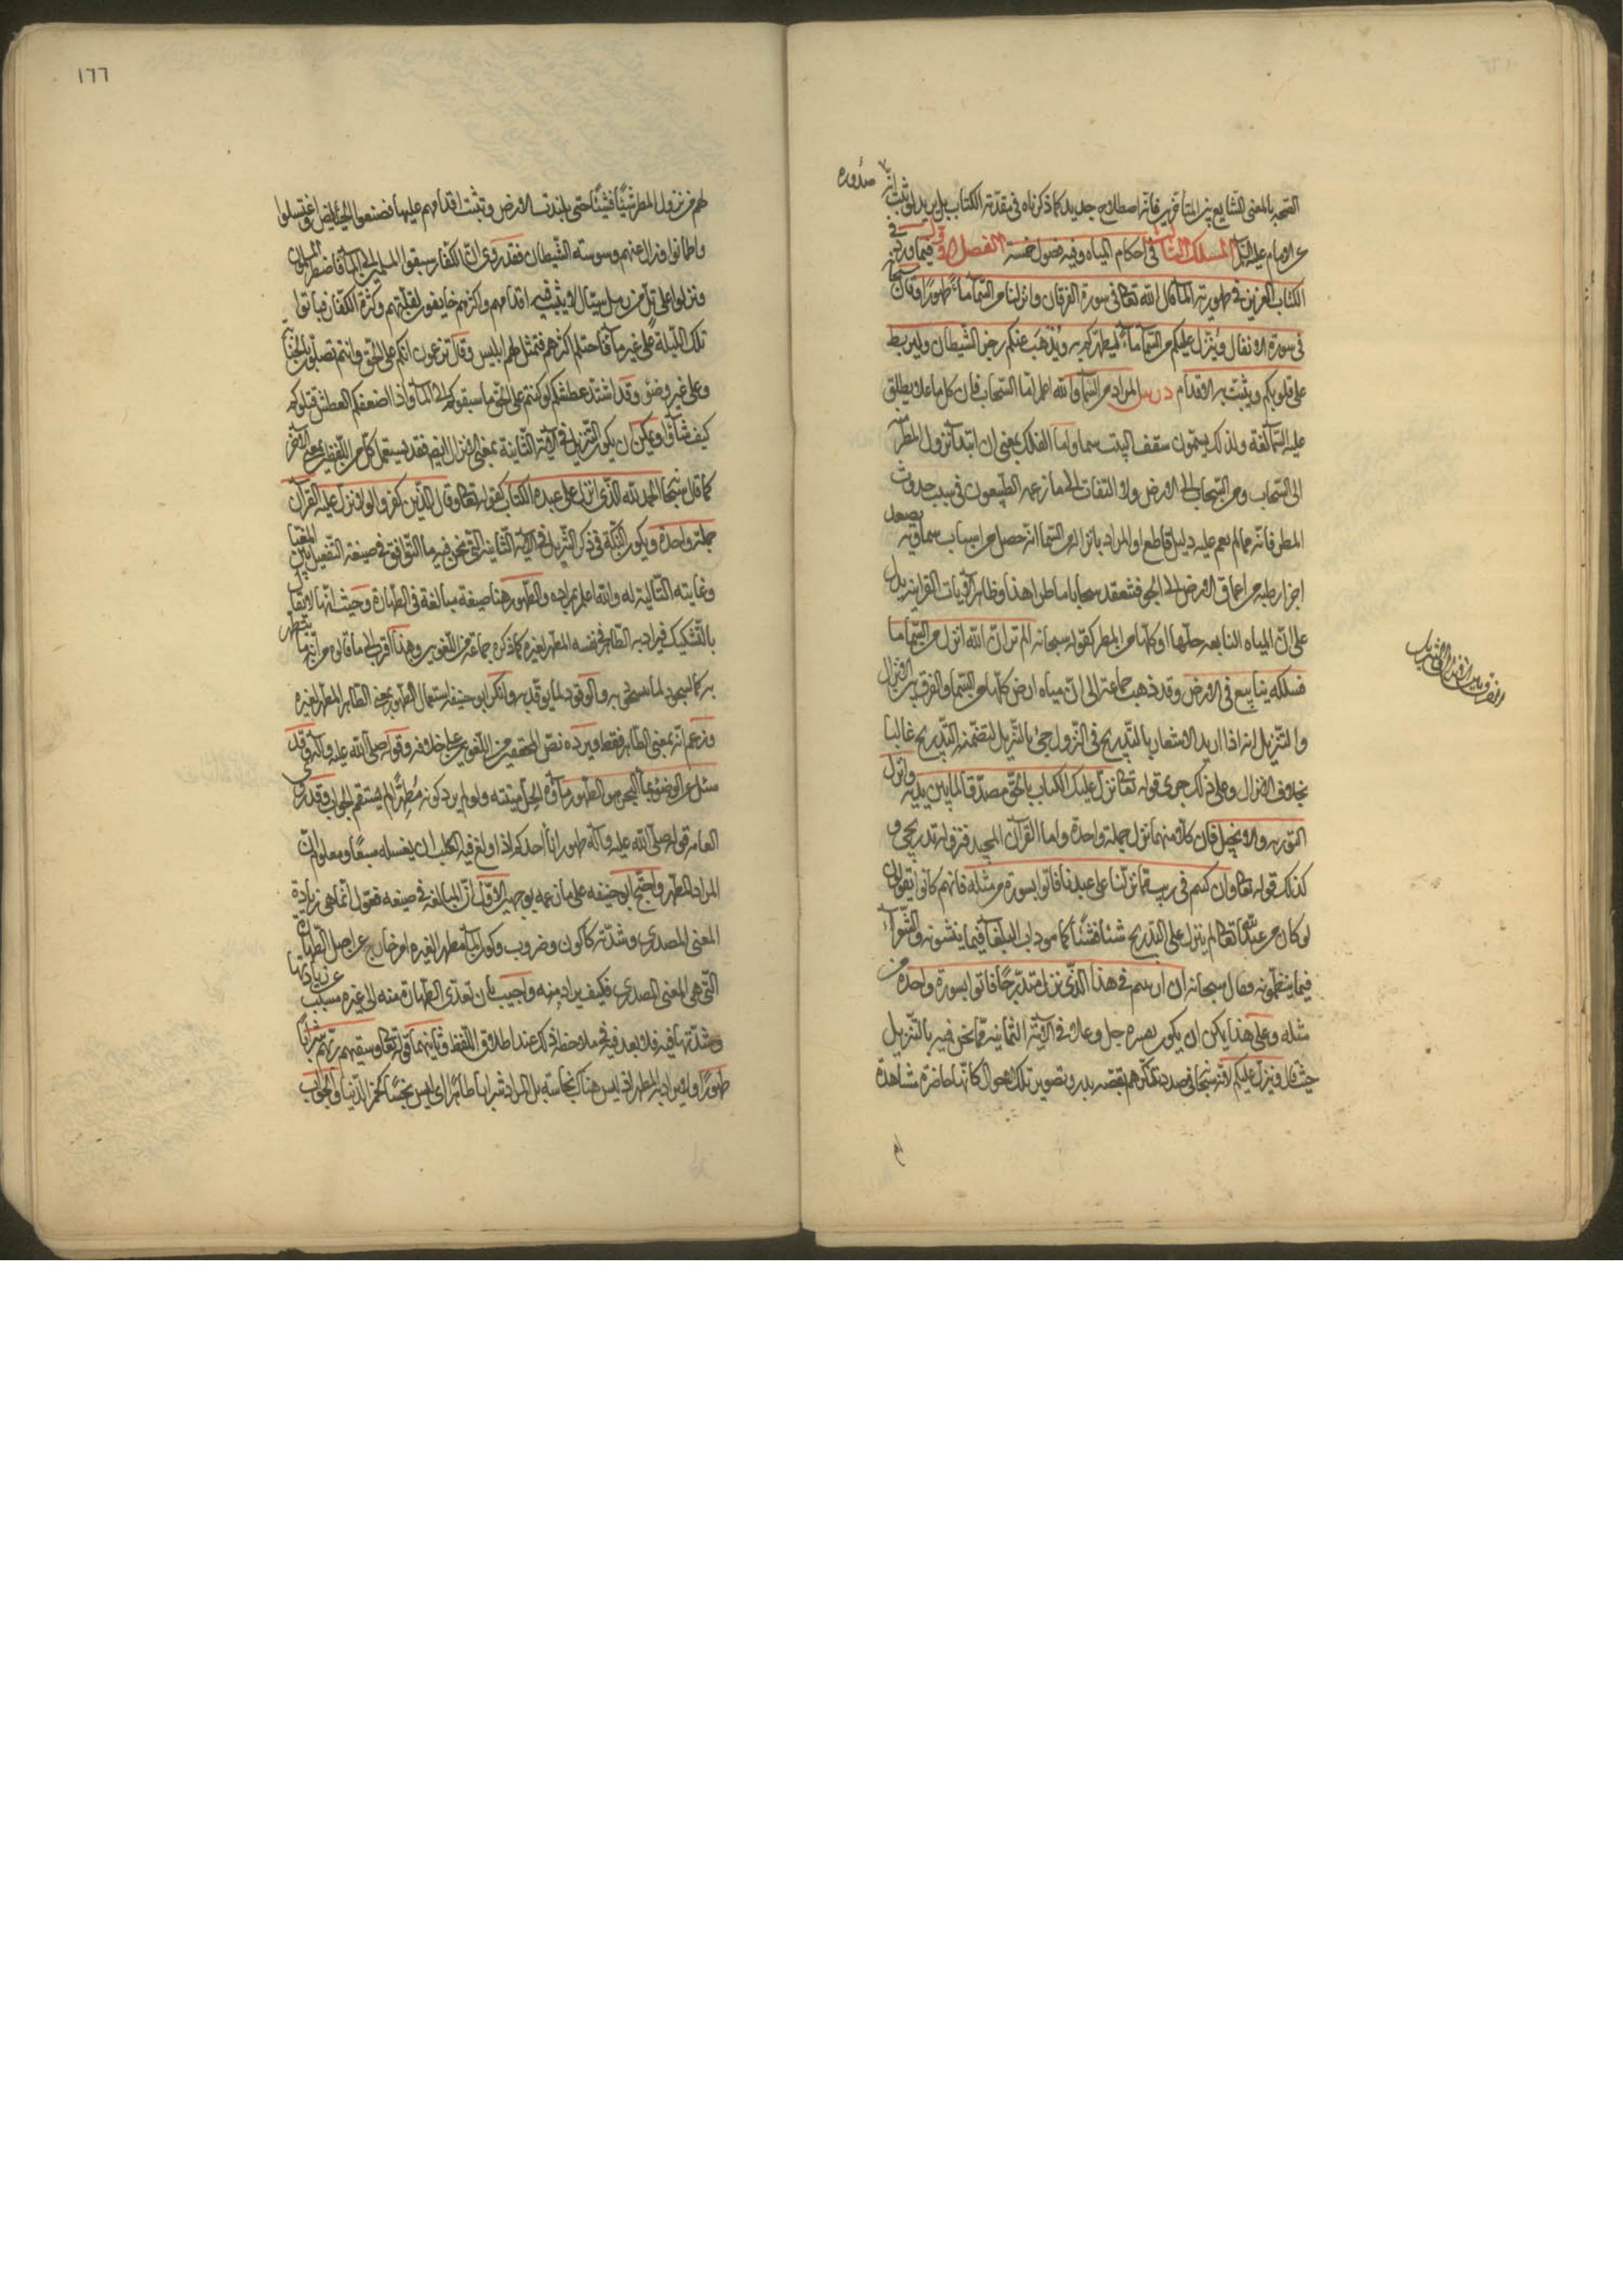 الصحة بالمعنى الشايع بين المتأخرين فانه اصطلاح جديد كما ذكرناه في مقدمة الكتاب بل يريد ثبت انه
صدوره
عن الامام عليه السلم المسلك الثاني في احكام المياه وفيه فصول خمسة الفصل الاول فيما ورد في
الكتاب العزيز في طهورية الماء قال الله تعالى في سورة الفرقان وانزلنا من السماء ماء طهورا وقال سبحانه
في سورة الانفال وينزل عليكم من السماء ماء ليطهركم به ويذهب عنكم رجز الشيطان وليربط
على قلوبكم ويثبت به الاقدام درس المراد من السماء والله اعلم اما السحاب فان كل ما علا يطلق
عليه السماء لغة ولذلك يسمون سقف البيت سماء واما الفلك بمعنى ان ابتداء نزول المطر منه
الى السحاب ومن السحاب الى الارض ولا التفات الى ما زعمه الطبيعيون في سبب حدوث
المطر فانه مما لم يقم عليه دليل قاطع او المراد بانزاله من السماء انه حصل من اسباب سماوية تصعد
اجزاء رطبة من اعماق الارض الى الجو فتنعقد سحابا ماطرا هذا وظاهر الايات القرانية يدل
على ان المياه النابعة جلها او كلها من المطر كقوله سبحانه الم تر ان الله انزل من السماء ماء
فسلكه ينابيع في الارض وقد ذهب جماعة الى ان مياه الارض كلها من السماء والفرق بين الانزال
الفرق بين الانزال والتنزيل
والتنزيل انه اذا اريد الاشعار بالتدريج في النزول جئ بالتنزيل لتضمنه التدريج غالبا
بخلاف الانزال وعلى ذلك جرى قوله تعالى نزل عليك الكتاب بالحق مصدقا لما بين يديه وانزل
التورية والانجيل فان كلا منهما نزل جملة واحدة واما القرآن المجيد فنزوله تدريجي و
كذلك قوله تعالى وان كنتم في ريب مما نزلنا على عبدنا فاتوا بسورة من مثله فانهم كانوا يقولون
لو كان من عند الله تعالى لم ينزل على التدريج شيئا فشيئا كما هو داب البلغاء فيما ينشونه والشعراء
فيما ينظمونه فقال سبحانه ان ارتبتم في هذا الذي نزل متدرجا فاتوا بسورة واحدة من
مثله وعلى هذا يمكن ان يكون تعبيره جل وعلا في الآية الثانية مما نحن فيه بالتنزيل
حيث قال وينزل عليكم لانه سبحانه في صدد تذكيرهم بقصة بدر وتصوير تلك الاحوال كانها حاضرة مشاهدة
لهم
١٦٦
لهم من نزول المطر شيئا فشيئا حتى تلبدت الارض وتثبت اقدامهم عليها فصنعوا الحياض واغتسلوا
واطمانوا وزال عنهم وسوسة الشيطان فقد روى ان الكفار سبقوا المسلمين الى الماء فاضطر المسلمون
ونزلوا على تل من رمل سيال لا يثبت فيه اقدامهم واكثرهم خايفون لقلتهم وكثرة الكفار فباتوا
تلك الليلة على غير ماء فاحتلم اكثرهم فتمثل لهم ابليس وقال تزعمون انكم على الحق وانتم تصلون بالجنابة
وعلى غير وضوء وقد اشتد عطشكم لو كنتم على الحق ما سبقوكم الى الماء واذا اضعفكم العطش قتلوكم
كيف شاؤا ويمكن ان يكون التنزيل في الآية الثانية بمعنى الانزال ايضا فقد يستعمل كل من اللفظين بمعنى الآخر
كما قال سبحانه الحمد لله الذي انزل على عبده الكتاب كقوله تعالى وقال الذين كفروا لولا نزل عليه القرآن
جملة واحدة ويكون النكتة في ذكر التنزيل في الآية الثانية التي نحن فيه ما التوافق في صيغة التفعيل بين المغيا
وغايته التالية له والله اعلم بمراده والطهور هنا صيغة مبالغة في الطهارة وحيث انها لا تقبل
بالتشكيك فيراد به الطاهر في نفسه المطهر لغيره كما ذكره جماعة من اللغويين وهذا اقرب الى ما قالوه من انه ما يتطهر
به كالسحور لما يتسحر به والوقود لما يوقد به وانكر ابو حنيفة استعمال الطهور بمعنى الطاهر المطهر لغيره
وزعم انه بمعنى الطاهر فقط ويرده نص المحققين من اللغويين على خلافه وقوله صلى الله عليه وآله وقد
سئل عن الوضوء بماء البحر هو الطهور ماؤه الحل ميتته ولو لم يرد كونه مطهرا لم يستقم الجواب وقد روى
العامة قوله صلى الله عليه وآله طهور اناء احدكم اذا ولغ فيه الكلب ان يغسله سبعا ومعلوم ان
المراد المطهر واحتج ابو حنيفه على ما زعمه بوجهين الاول ان المبالغة في صيغة فعول انما هي زيادة
المعنى المصدري وشدته كاكول وضروب وكون الماء مطهرا لغيره امر خارج عن اصل الطهارة
التي هي المعنى المصدري فكيف يراد منه واجيب بان تعدي الطهارة منه الى غيره مسبب عن زيادتها
وشدتها فيه فلا بعد في ملاحظة ذلك عند اطلاق اللفظ وثانيهما قوله تعالى وسقيهم ربهم شرابا
طهورا ولا يراد به المطهر اذ ليس هناك نجاسة بل المراد شرابا طاهرا اي ليس نجسا كخمر الدنيا والجواب